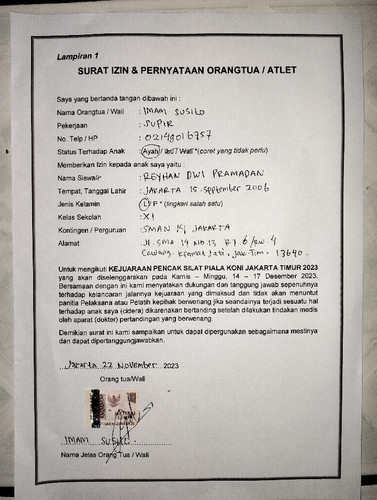 Lampiran 1
SURAT IZIN & PERNYATAAN ORANGTUA / ATLET
Saya yang bertanda tangan dibawah ini :
Nama Orangtua / Wali : IMAM SUSILO
Pekerjaan : SUPIR
No. Telp / HP :
Status Terhadap Anak : Ayah / Ibu / Wali *(coret yang tidak perlu)
Memberikan Izin kepada anak saya yaitu :
Nama Siswa/i* : REYHAN DWI PRAMADAN
Tempat, Tanggal Lahir : JAKARTA 15 September 2006
Jenis Kelamin : L/P *(lingkari salah satu)
Kelas Sekolah : XI
Kontingen / Perguruan : SMAN JAKARTA
Alamat : Jl. SMA 14 NO.13 RT.6/RW.4
Cawang. Kramat Jati. Jak-Tim. 13640.
Untuk mengikuti KEJUARAAN PENCAK SILAT PIALA KONI JAKARTA TIMUR 2023
yang akan diselenggarakan pada Kamis – Minggu, 14 – 17 Desember 2023.
Bersamaan dengan ini kami menyatakan dukungan dan tanggung jawab sepenuhnya
terhadap kelancaran jalannya kejuaraan yang dimaksud dan tidak akan menuntut
panitia Pelaksana atau Pelatih kepihak berwajib jika seandainya terjadi sesuatu hal
terhadap anak saya (cidera) dikarenakan bertanding setelah dilakukan tindakan medis
oleh aparat (dokter) pertandingan yang berwenang.
Demikian surat ini kami sampaikan untuk dapat dipergunakan sebagaimana mestinya
dan dapat dipertanggungjawabkan.
Jakarta 22 November 2023
Orang tua/Wali
IMAM SUSILO
Nama Jelas Orang Tua / Wali